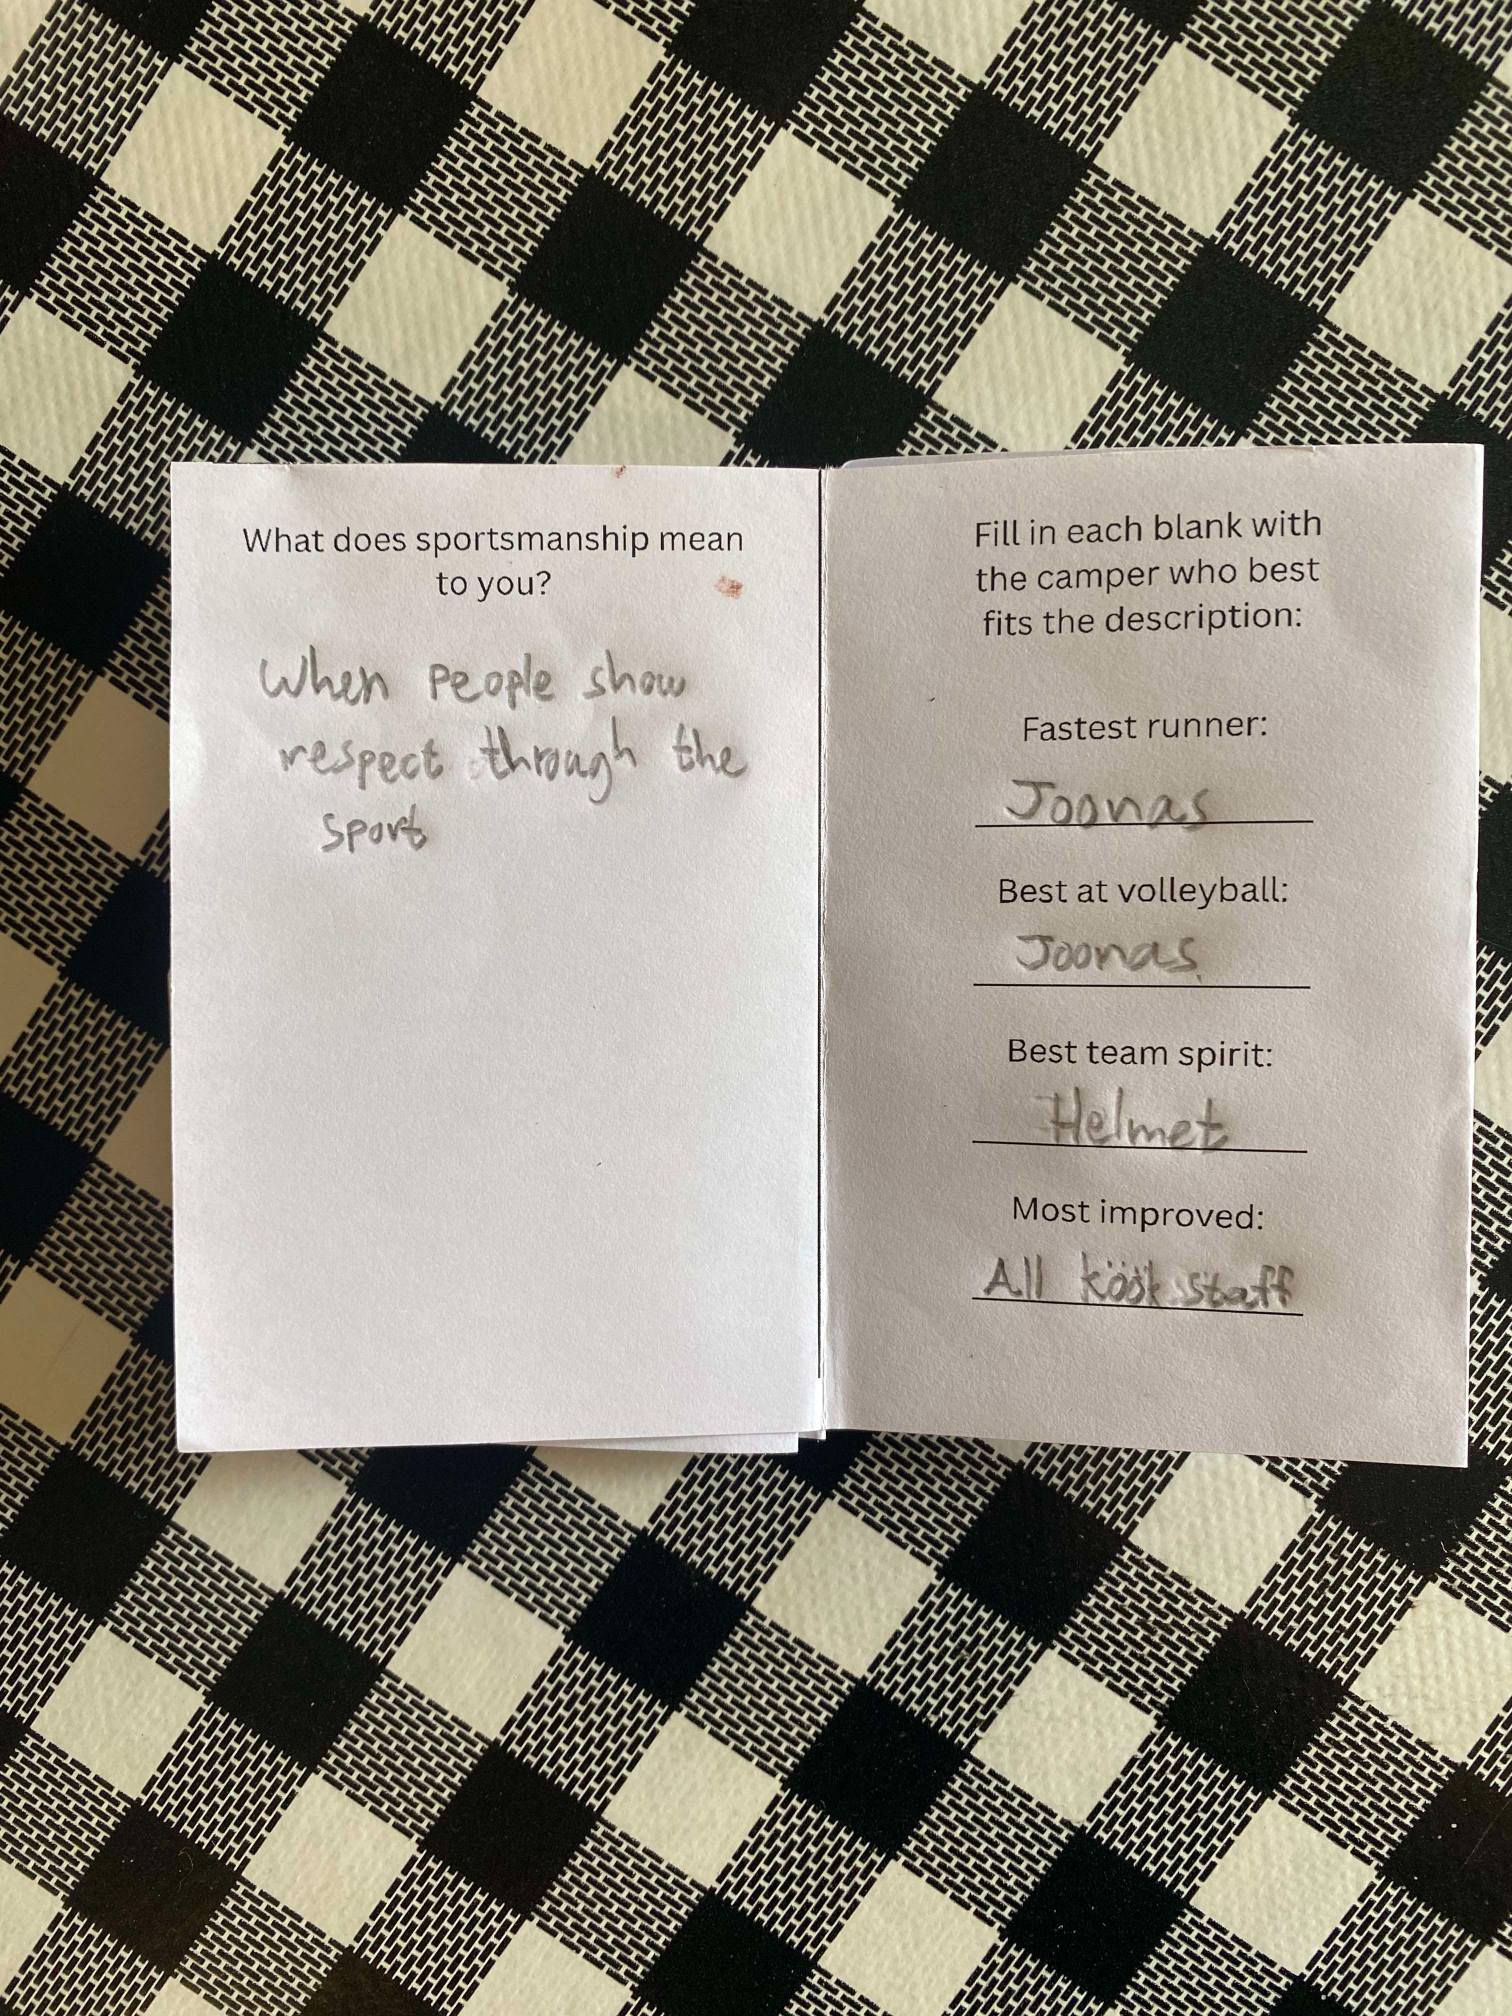 What does sportsmanship mean
to you?
When people show
respect through the
sport
Fill in each blank with
the camper who best
fits the description:
Fastest runner:
Joonas
Best at volleyball:
Joonas
Best team spirit:
Helmet
Most improved:
All köök staff